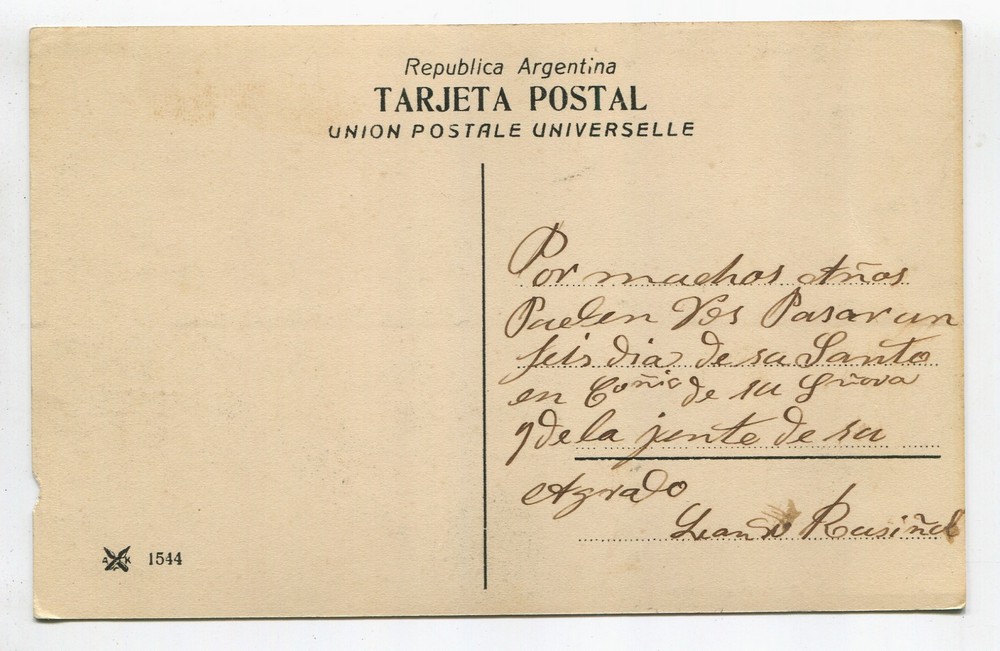 Republica Argentina
TARJETA POSTAL
UNION POSTALE UNIVERSELLE
Por muchos Años
Pueden Pasar un
feis dia de su Santo
en Coñia de su Sñora
y de la jente de su
Agrado
Leandro Rusiñol
A K 1544